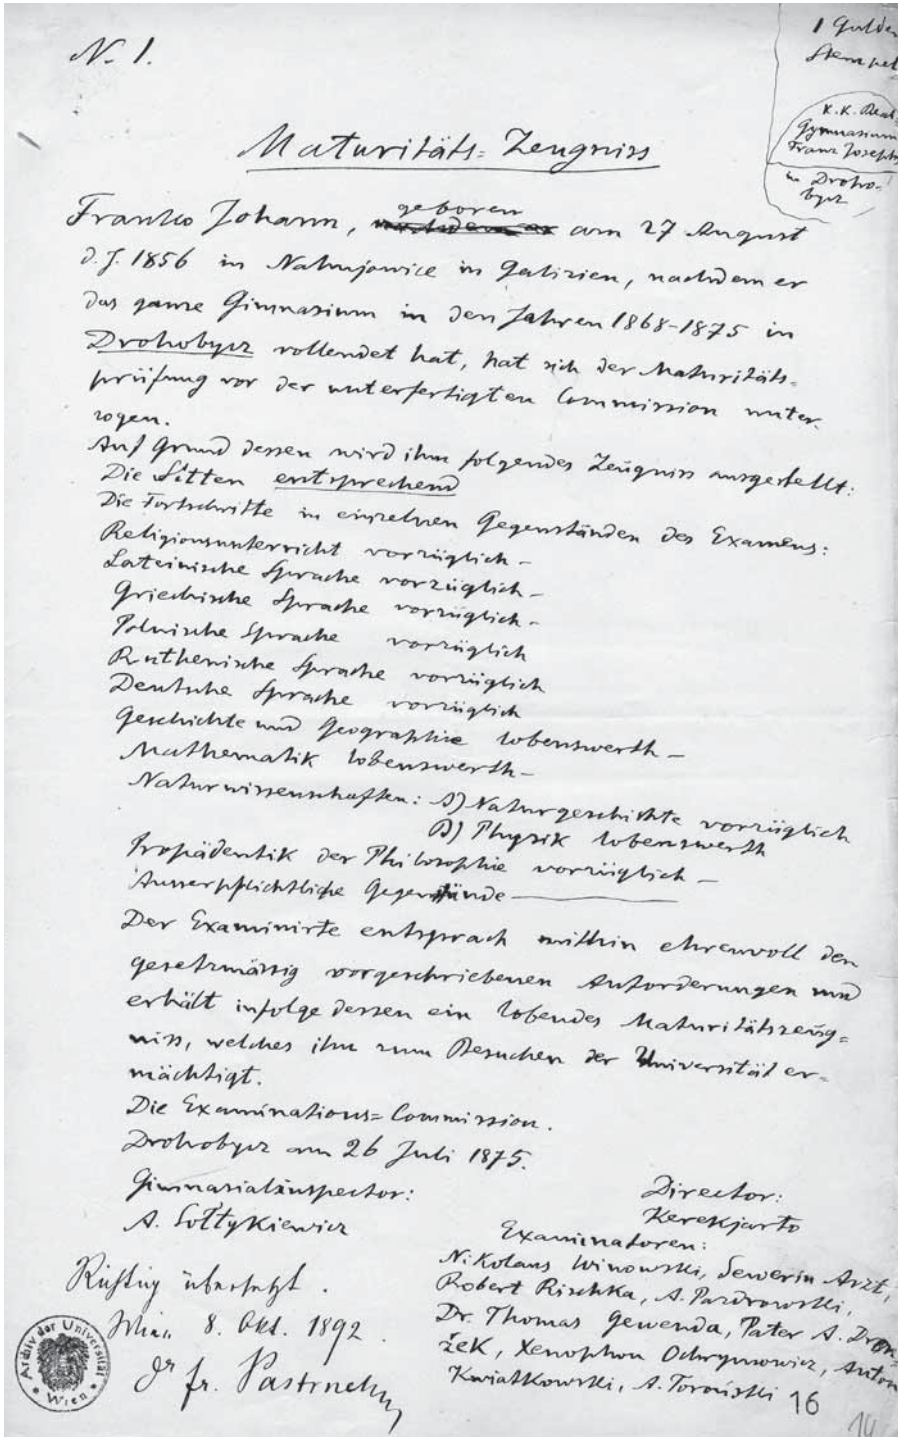 N. 1.
1 Gulden
Stempel
K.K. Real-
Gymnasium
Franz Joseph
in Droho-
bycz
Maturitäts=Zeugniss
Franko Johann, geboren am 27 August
d. J. 1856 in Nahujowice in Galizien, nachdem er
das ganze Gimnasium in den Jahren 1868-1875 in
Drohobycz vollendet hat, hat sich der Maturitäts-
prüfung vor der unterfertigten Commission unter-
zogen.
Auf Grund dessen wird ihm folgendes Zeugniss ausgestellt:
Die Sitten entsprechend
Die Fortschritte in einzelnen Gegenständen des Examens:
Religionsunterricht vorzüglich -
Lateinische Sprache vorzüglich -
Griechische Sprache vorzüglich -
Polnische Sprache vorzüglich
Ruthenische Sprache vorzüglich
Deutsche Sprache vorzüglich
Geschichte und Geographie lobenswerth -
Mathematik lobenswerth -
Naturwissenschaften: A) Naturgeschichte vorzüglich
B) Physik lobenswerth
Propädeutik der Philosophie vorzüglich -
Ausserpflichtliche Gegenstände -
Der Examinirte entsprach mithin ehrenvoll den
gesetzmässig vorgeschriebenen Anforderungen und
erhält infolge dessen ein lobendes Maturitätszeug=
niss, welches ihn zum Besuchen der Universität er=
mächtigt.
Die Examinations=Commission.
Drohobycz am 26 Juli 1875.
Gimnasialinspector:
A. Sołtykiewicz
Director:
Kerekjarto
Examinatoren:
Nikolaus Winowski, Sewerin Arzt,
Robert Rischka, A. Pazdrowski,
Dr. Thomas Gewenda, Pater A. Dron-
żek, Xenophon Ochrymowicz, Anton
Kwiatkowski, A. Toroński
Richtig übersetzt.
Wien 8. Okt. 1892.
Dr fr. Pastrnek
Archiv der Universität
Wien
16
14